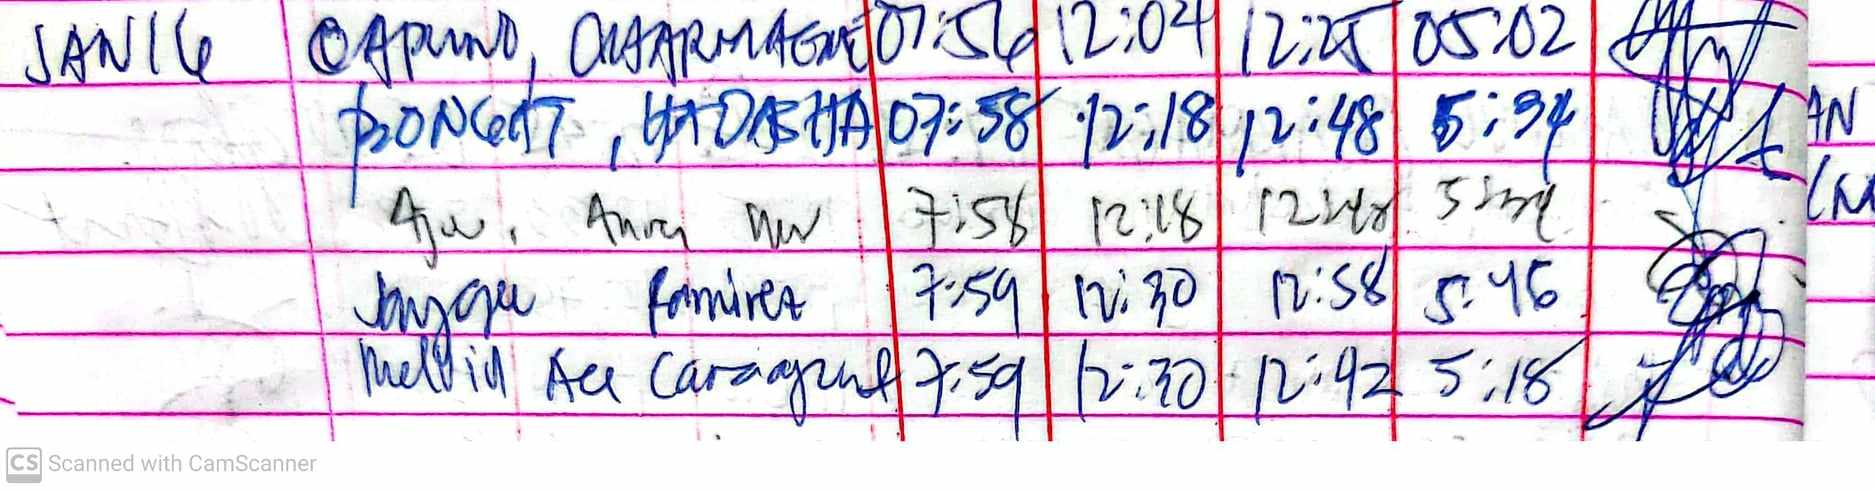 JAN 16 CAPUNO, CHARMAGNE 07:56 12:04 12:25 05:02
BONGAT, HADASHA 07:58 12:18 12:48 5:34
7:58 12:18 12:48 5:34
Jaygee Ramirez 7:59 12:30 12:58 5:46
Melvin Ace 7:59 12:30 12:42 5:18
AN
CS Scanned with CamScanner